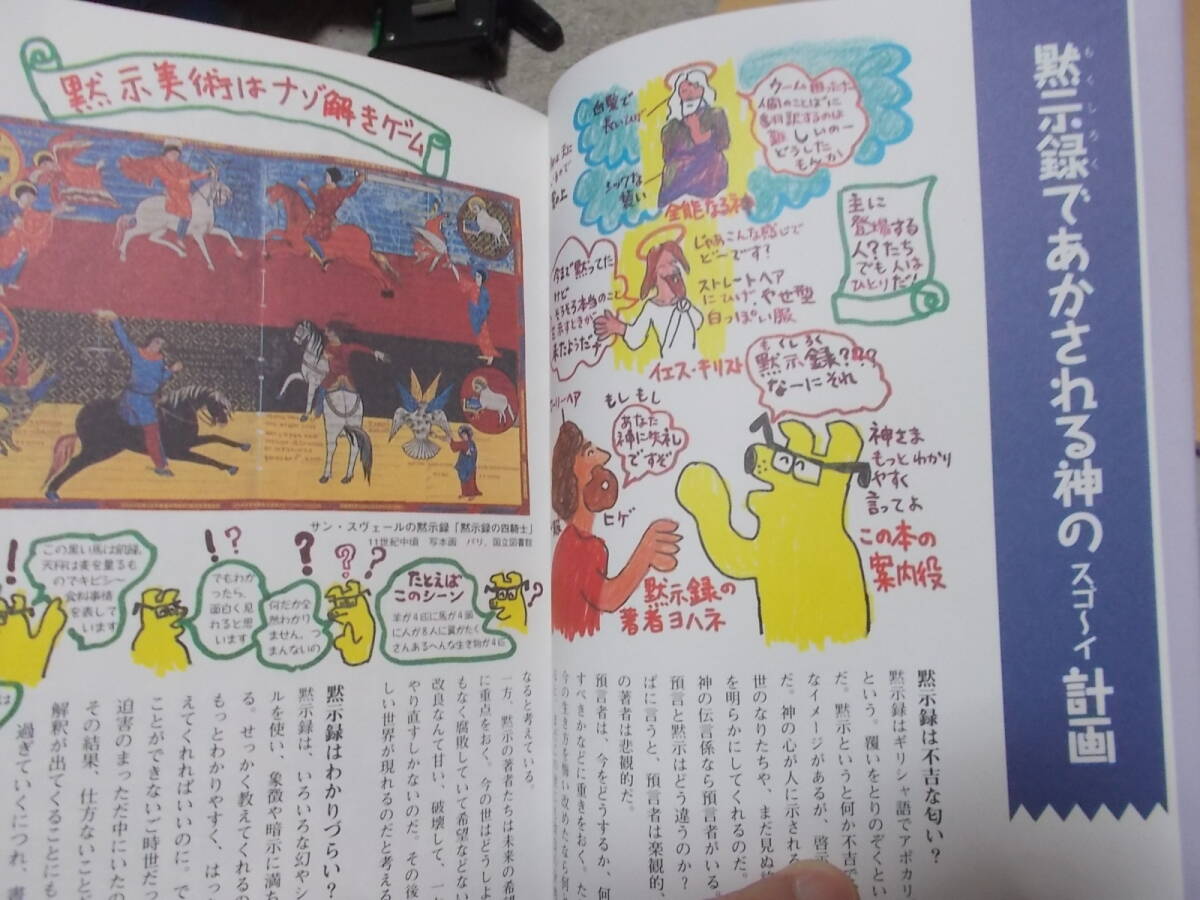 黙示録であかされる神のスゴ〜イ計画
もくしろく
主に
登場する
人?たち
でも人は
ひとりだ!
ウーム困った
人間のことばに
翻訳するのは
難しいのー
どうした
もんか
白髪で
長い
シックな
装い
全能なる神
じゃあこんな感じで
どーです?
今まで黙ってた
けど
そろそろ本当のこと
示すときが
来たようだな
ストレートヘア
にひげ、やせ型
白っぽい服
イエス・キリスト
もくしろく
黙示録???
なーにそれ
もしもし
あなた
神に失礼
ですぞ
ヒゲ
神さま
もっとわかり
やすく
言ってよ
この本の
案内役
黙示録の
著者ヨハネ
黙示録は不吉な匂い?
黙示録はギリシャ語でアポカリ
という。覆いをとりのぞくとい
だ。黙示というと何か不吉で
なイメージがあるが、啓示
だ。神の心が人に示される
世のなりたちや、まだ見ぬ
を明らかにしてくれるのだ。
神の伝言係なら預言者がいる。
預言と黙示はどう違うのか?
ばに言うと、預言者は楽観的、
の著者は悲観的だ。
預言者は、今をどうするか、何
すべきかなどに重きをおく。た
今の生き方を悔い改めたなら何
黙示美術はナゾ解きゲーム
サン・スヴェールの黙示録「黙示録の四騎士」
11世紀中頃 写本画 パリ、国立図書館
たとえば
このシーン
羊が4匹に馬が4頭
に人が8人に翼がたく
さんあるへんな生き物が4匹
何だか全
然わかり
ません。つ
まんないの
でもわか
ったら、
面白く見
れると思
います
この黒い馬は飢饉、
天秤は麦を量るも
のでキビシ〜
食料事情
を表して
います
なると考えている。
一方、黙示の著者たちは未来の希望
に重点をおく。今の世はどうしよ
もなく腐敗していて希望などない
改良なんて甘い、破壊して、一
やり直すしかないのだ。その後
しい世界が現れるのだと考える
黙示録はわかりづらい?
黙示録は、いろいろな幻やシ
ルを使い、象徴や暗示に満ち
る。せっかく教えてくれるの
もっとわかりやすく、はっ
えてくれればいいのに。で
ことができないご時世だっ
迫害のまっただ中にいたの
その結果、仕方ないことど
解釈が出てくることにも
過ぎていくにつれ、書